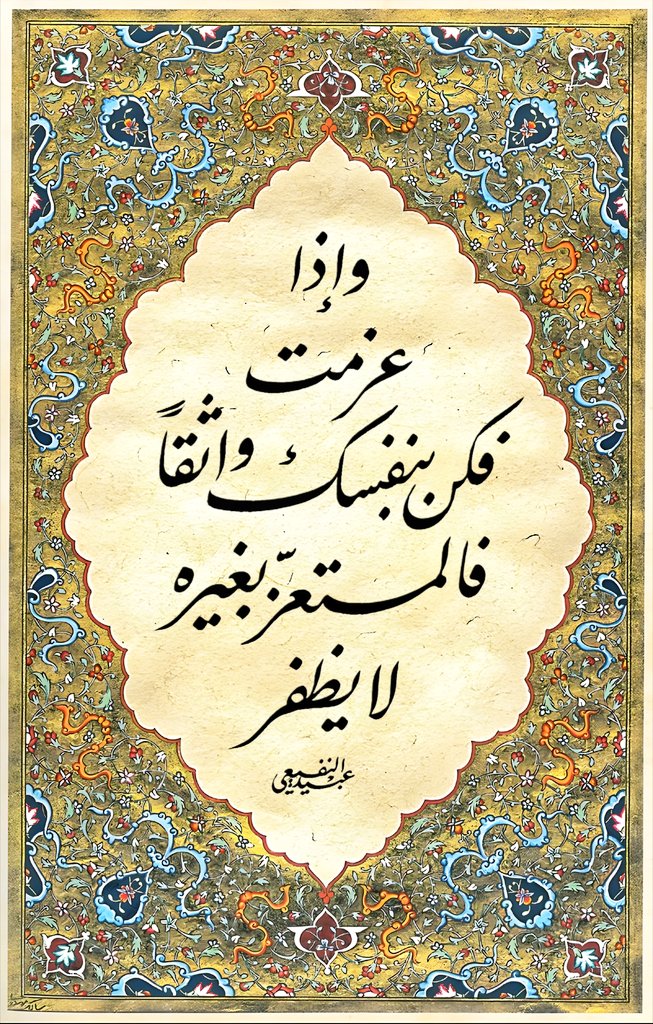 وإذا
عزمت
فكن بنفسك واثقاً
فالمستعزّ بغيره
لا يظفر
عبيد النفيعي